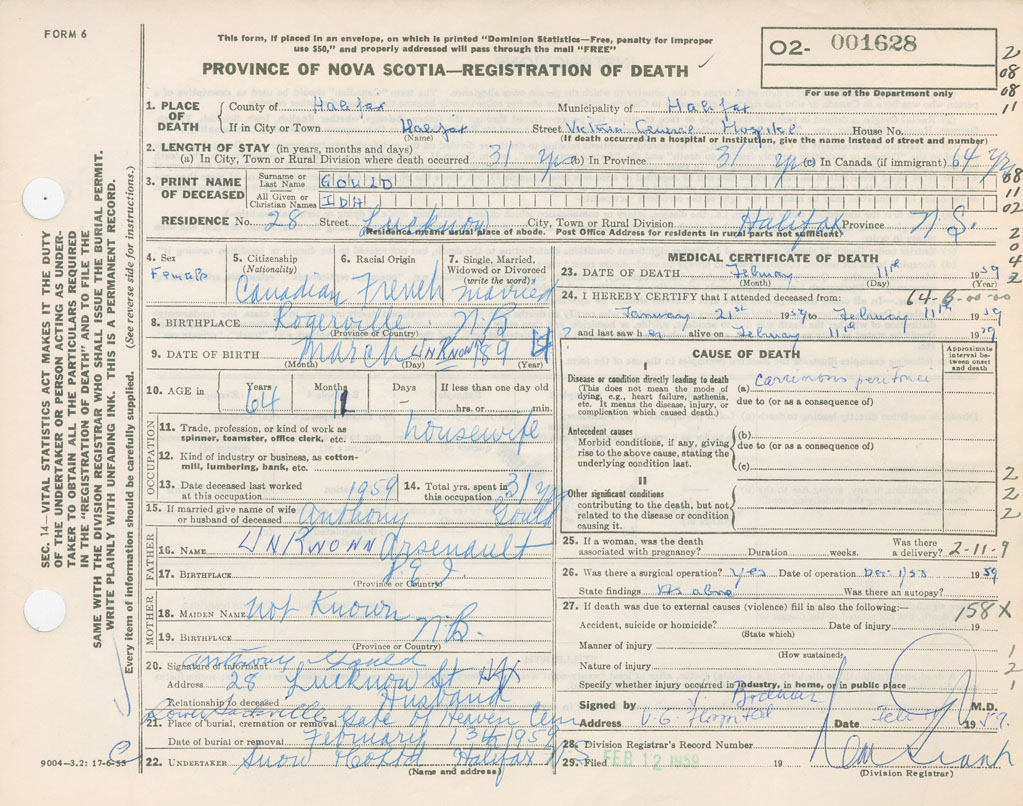 FORM 6
This form, if placed in an envelope, on which is printed "Dominion Statistics—Free, penalty for improper
use $50," and properly addressed will pass through the mail "FREE"
PROVINCE OF NOVA SCOTIA—REGISTRATION OF DEATH
O2- 001628
For use of the Department only
2
08
08
11
1. PLACE OF DEATH
County of Halifax Municipality of Halifax
If in City or Town Halifax Street Victoria General Hospital House No.
(Name) (If death occurred in a hospital or institution, give the name instead of street and number)
2. LENGTH OF STAY (in years, months and days)
(a) In City, Town or Rural Division where death occurred 31 yrs (b) In Province 31 yrs (c) In Canada (if immigrant) 64 yrs
3. PRINT NAME OF DECEASED
Surname or Last Name GOULD
All Given or Christian Names IDA
08
11
02
RESIDENCE No. 28 Street Lucknow City, Town or Rural Division Halifax Province N.S.
(Residence means usual place of abode. Post Office Address for residents in rural parts not sufficient)
4. Sex Female
5. Citizenship (Nationality) Canadian
6. Racial Origin French
7. Single, Married, Widowed or Divorced (write the word) Married
8. BIRTHPLACE Rogerville N.B.
(Province or Country)
9. DATE OF BIRTH March UNKNOWN 189
(Month) (Day) (Year)
10. AGE in Years 64 Months 11 Days - If less than one day old
hrs. or min.
OCCUPATION
11. Trade, profession, or kind of work as
spinner, teamster, office clerk, etc. housewife
12. Kind of industry or business, as cotton-
mill, lumbering, bank, etc.
13. Date deceased last worked
at this occupation 1959
14. Total yrs. spent in
this occupation 31 yrs
15. If married give name of wife
or husband of deceased Anthony Gould
FATHER
16. NAME UNKNOWN Arsenault
17. BIRTHPLACE P.E.I.
(Province or Country)
MOTHER
18. MAIDEN NAME not Known
19. BIRTHPLACE N.B.
(Province or Country)
20. Signature of informant Anthony Gould
Address 28 Lucknow St Hfx
Relationship to deceased Husband
Lower Sackville
21. Place of burial, cremation or removal Gate of Heaven Cem
Date of burial or removal February 13th 1959
22. UNDERTAKER Snow Halifax N.S.
(Name and address)
9004-3.2: 17-6-55
MEDICAL CERTIFICATE OF DEATH
23. DATE OF DEATH February 11th 1959
(Month) (Day) (Year)
24. I HEREBY CERTIFY that I attended deceased from: 64-B-00-00
January 21st 1959 to February 11th 1959
and last saw her alive on February 11th 1959
CAUSE OF DEATH
Approximate
interval be-
tween onset
and death
I
Disease or condition directly leading to death
(This does not mean the mode of
dying, e.g., heart failure, asthenia,
etc. It means the disease, injury, or
complication which caused death.)
(a) Carcinosis peritonei
due to (or as a consequence of)
Antecedent causes
Morbid conditions, if any, giving
rise to the above cause, stating the
underlying condition last.
(b)
due to (or as a consequence of)
(c)
II
Other significant conditions
contributing to the death, but not
related to the disease or condition
causing it.
25. If a woman, was the death
associated with pregnancy? Duration weeks. Was there
a delivery? 2-11-9
26. Was there a surgical operation? Yes Date of operation 1959
State findings As above Was there an autopsy?
27. If death was due to external causes (violence) fill in also the following:—
158X
Accident, suicide or homicide? Date of injury 19
(State which)
Manner of injury
(How sustained)
Nature of injury
Specify whether injury occurred in industry, in home, or in public place
Signed by M.D.
Address V.G. Hospital Date Feb 1959.
28. Division Registrar's Record Number
29. Filed FEB 12 1959 19
(Division Registrar)
2
0
4
2
2
2
2
1
2
1
SEC. 14—VITAL STATISTICS ACT MAKES IT THE DUTY
OF THE UNDERTAKER OR PERSON ACTING AS UNDER-
TAKER TO OBTAIN ALL THE PARTICULARS REQUIRED
IN THE "REGISTRATION OF DEATH" AND TO FILE THE
SAME WITH THE DIVISION REGISTRAR WHO SHALL ISSUE THE BURIAL PERMIT.
WRITE PLAINLY WITH UNFADING INK. THIS IS A PERMANENT RECORD.
Every item of information should be carefully supplied. (See reverse side for instructions.)